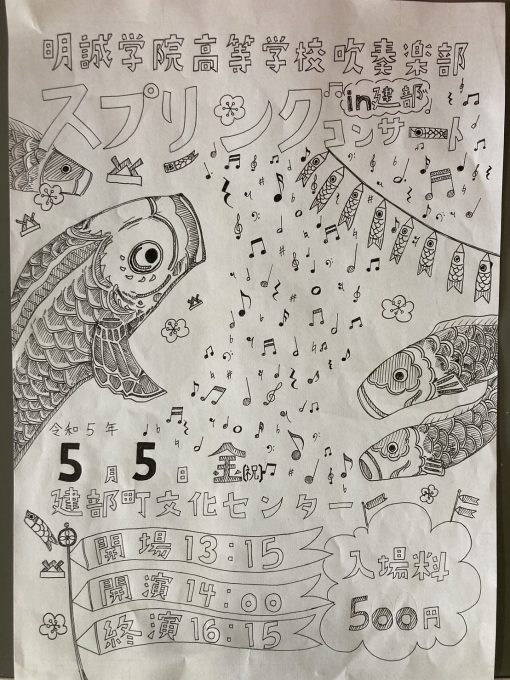 明誠学院高等学校吹奏楽部
スプリング in建部
コンサート
令和5年
5月5日 金(祝)
建部町文化センター
開場 13:15
開演 14:00
終演 16:15
入場料
500円